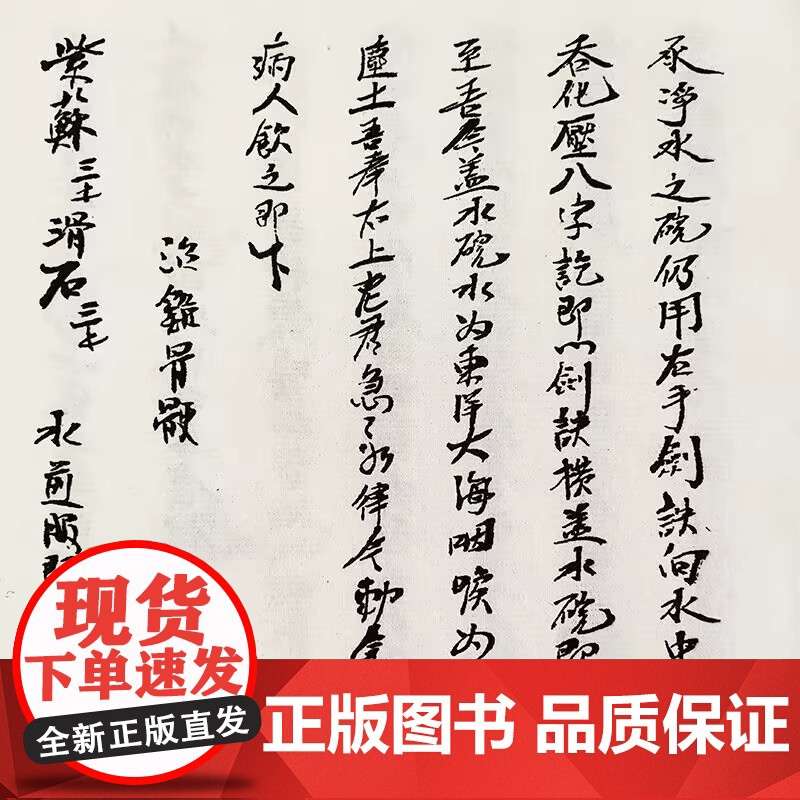 承净水之碗仍用右手劍訣向水中
吞化壓八字訖即以劍訣横盖水碗即
至吾今盖水碗水为東洋大海咽喉为
速土吾奉太上老君急〻如律令勅令
病人飲之即下
治雞骨骾
紫蘇 三七 滑石 三七 水煎服
现货
全新正版直发
正版图书 品质保证